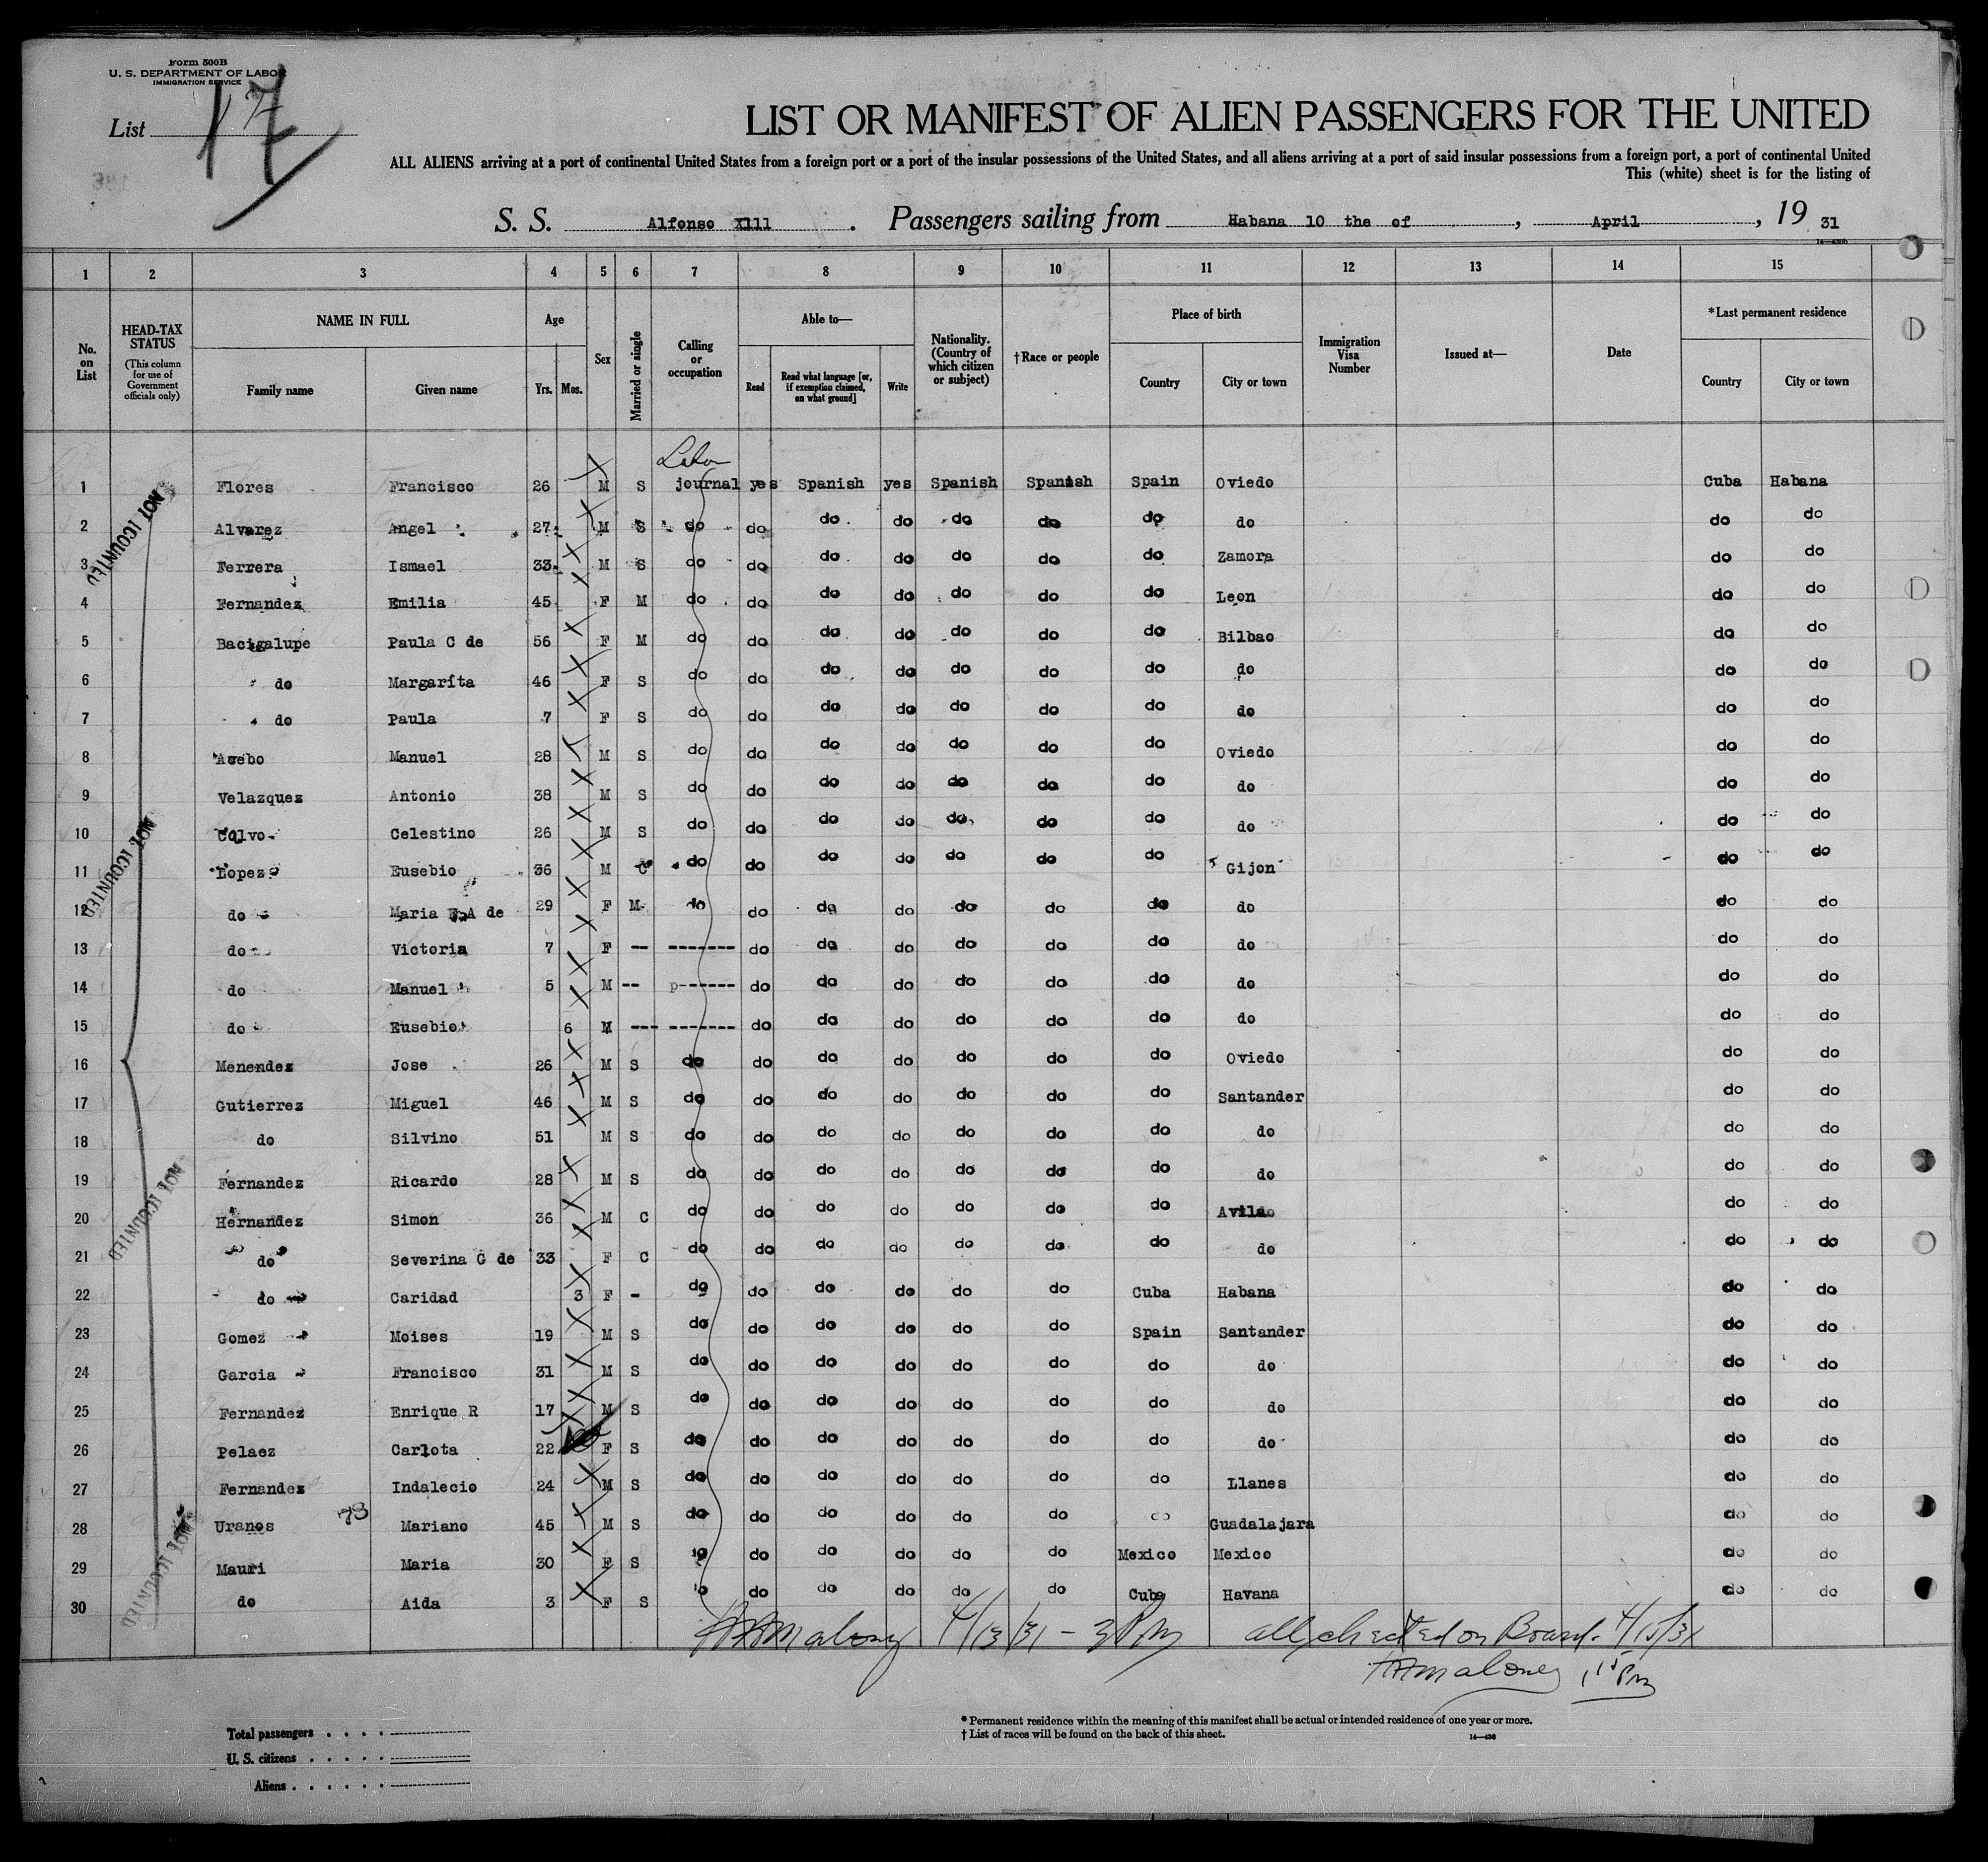 Form 500B
U. S. DEPARTMENT OF LABOR
IMMIGRATION SERVICE
List 17
LIST OR MANIFEST OF ALIEN PASSENGERS FOR THE UNITED
ALL ALIENS arriving at a port of continental United States from a foreign port or a port of the insular possessions of the United States, and all aliens arriving at a port of said insular possessions from a foreign port, a port of continental United
This (white) sheet is for the listing of
S. S. Alfonso XIII . Passengers sailing from Habana 10 the of , April , 19 31
1 2 3 4 5 6 7 8 9 10 11 12 13 14 15
No. on List
HEAD-TAX STATUS (This column for use of Government officials only)
NAME IN FULL
Family name Given name
Age
Yrs. Mos.
Sex
Married or single
Calling or occupation
Able to—
Read Read what language [or, if exemption claimed, on what ground] Write
Nationality. (Country of which citizen or subject)
†Race or people
Place of birth
Country City or town
Immigration Visa Number
Issued at—
Date
*Last permanent residence
Country City or town
Labor
1 Flores Francisco 26 M S journal yes Spanish yes Spanish Spanish Spain Oviedo Cuba Habana
2 Alvarez Angel 27 M S do do do do do do do do do do
3 Ferrera Ismael 33 M S do do do do do do do Zamora do do
4 Fernandez Emilia 45 F M do do do do do do do Leon do do
5 Bacigalupe Paula C de 56 F M do do do do do do do Bilbao do do
6 do Margarita 46 F S do do do do do do do do do do
7 do Paula 7 F S do do do do do do do do do do
8 Manuel 28 M S do do do do do do do Oviedo do do
9 Velazquez Antonio 38 M S do do do do do do do do do do
10 Calvo Celestino 26 M S do do do do do do do do do do
11 Lopez Eusebio 36 M C do do do do do do do Gijon do do
12 do Maria A de 29 F M do do do do do do do do do do
13 do Victoria 7 F -- ------- do do do do do do do do do
14 do Manuel 5 M -- p------ do do do do do do do do do
15 do Eusebio 6 M --- ------- do do do do do do do do do
16 Menendez Jose 26 M S do do do do do do do Oviedo do do
17 Gutierrez Miguel 46 M S do do do do do do do Santander do do
18 do Silvino 51 M S do do do do do do do do do do
19 Fernandez Ricardo 28 M S do do do do do do do do do do
20 Hernandez Simon 36 M C do do do do do do do Avilao do do
21 do Severina G de 33 F C do do do do do do do do do do
22 do Caridad 3 F - do do do do do do Cuba Habana do do
23 Gomez Moises 19 M S do do do do do do Spain Santander do do
24 Garcia Francisco 31 M S do do do do do do do do do do
25 Fernandez Enrique R 17 M S do do do do do do do do do do
26 Pelaez Carlota 22 F S do do do do do do do do do do
27 Fernandez Indalecio 24 M S do do do do do do do Llanes do do
28 Uranos 73 Mariano 45 M S do do do do do do do Guadalajara do do
29 Mauri Maria 30 F S do do do do do do Mexico Mexico do do
30 do Aida 3 F S do do do do do do Cuba Havana do do
Maloney 4/13/31 - 3 Pm all checked on Board. 4/15/31
Maloney
Total passengers
U. S. citizens
Aliens
* Permanent residence within the meaning of this manifest shall be actual or intended residence of one year or more.
† List of races will be found on the back of this sheet.